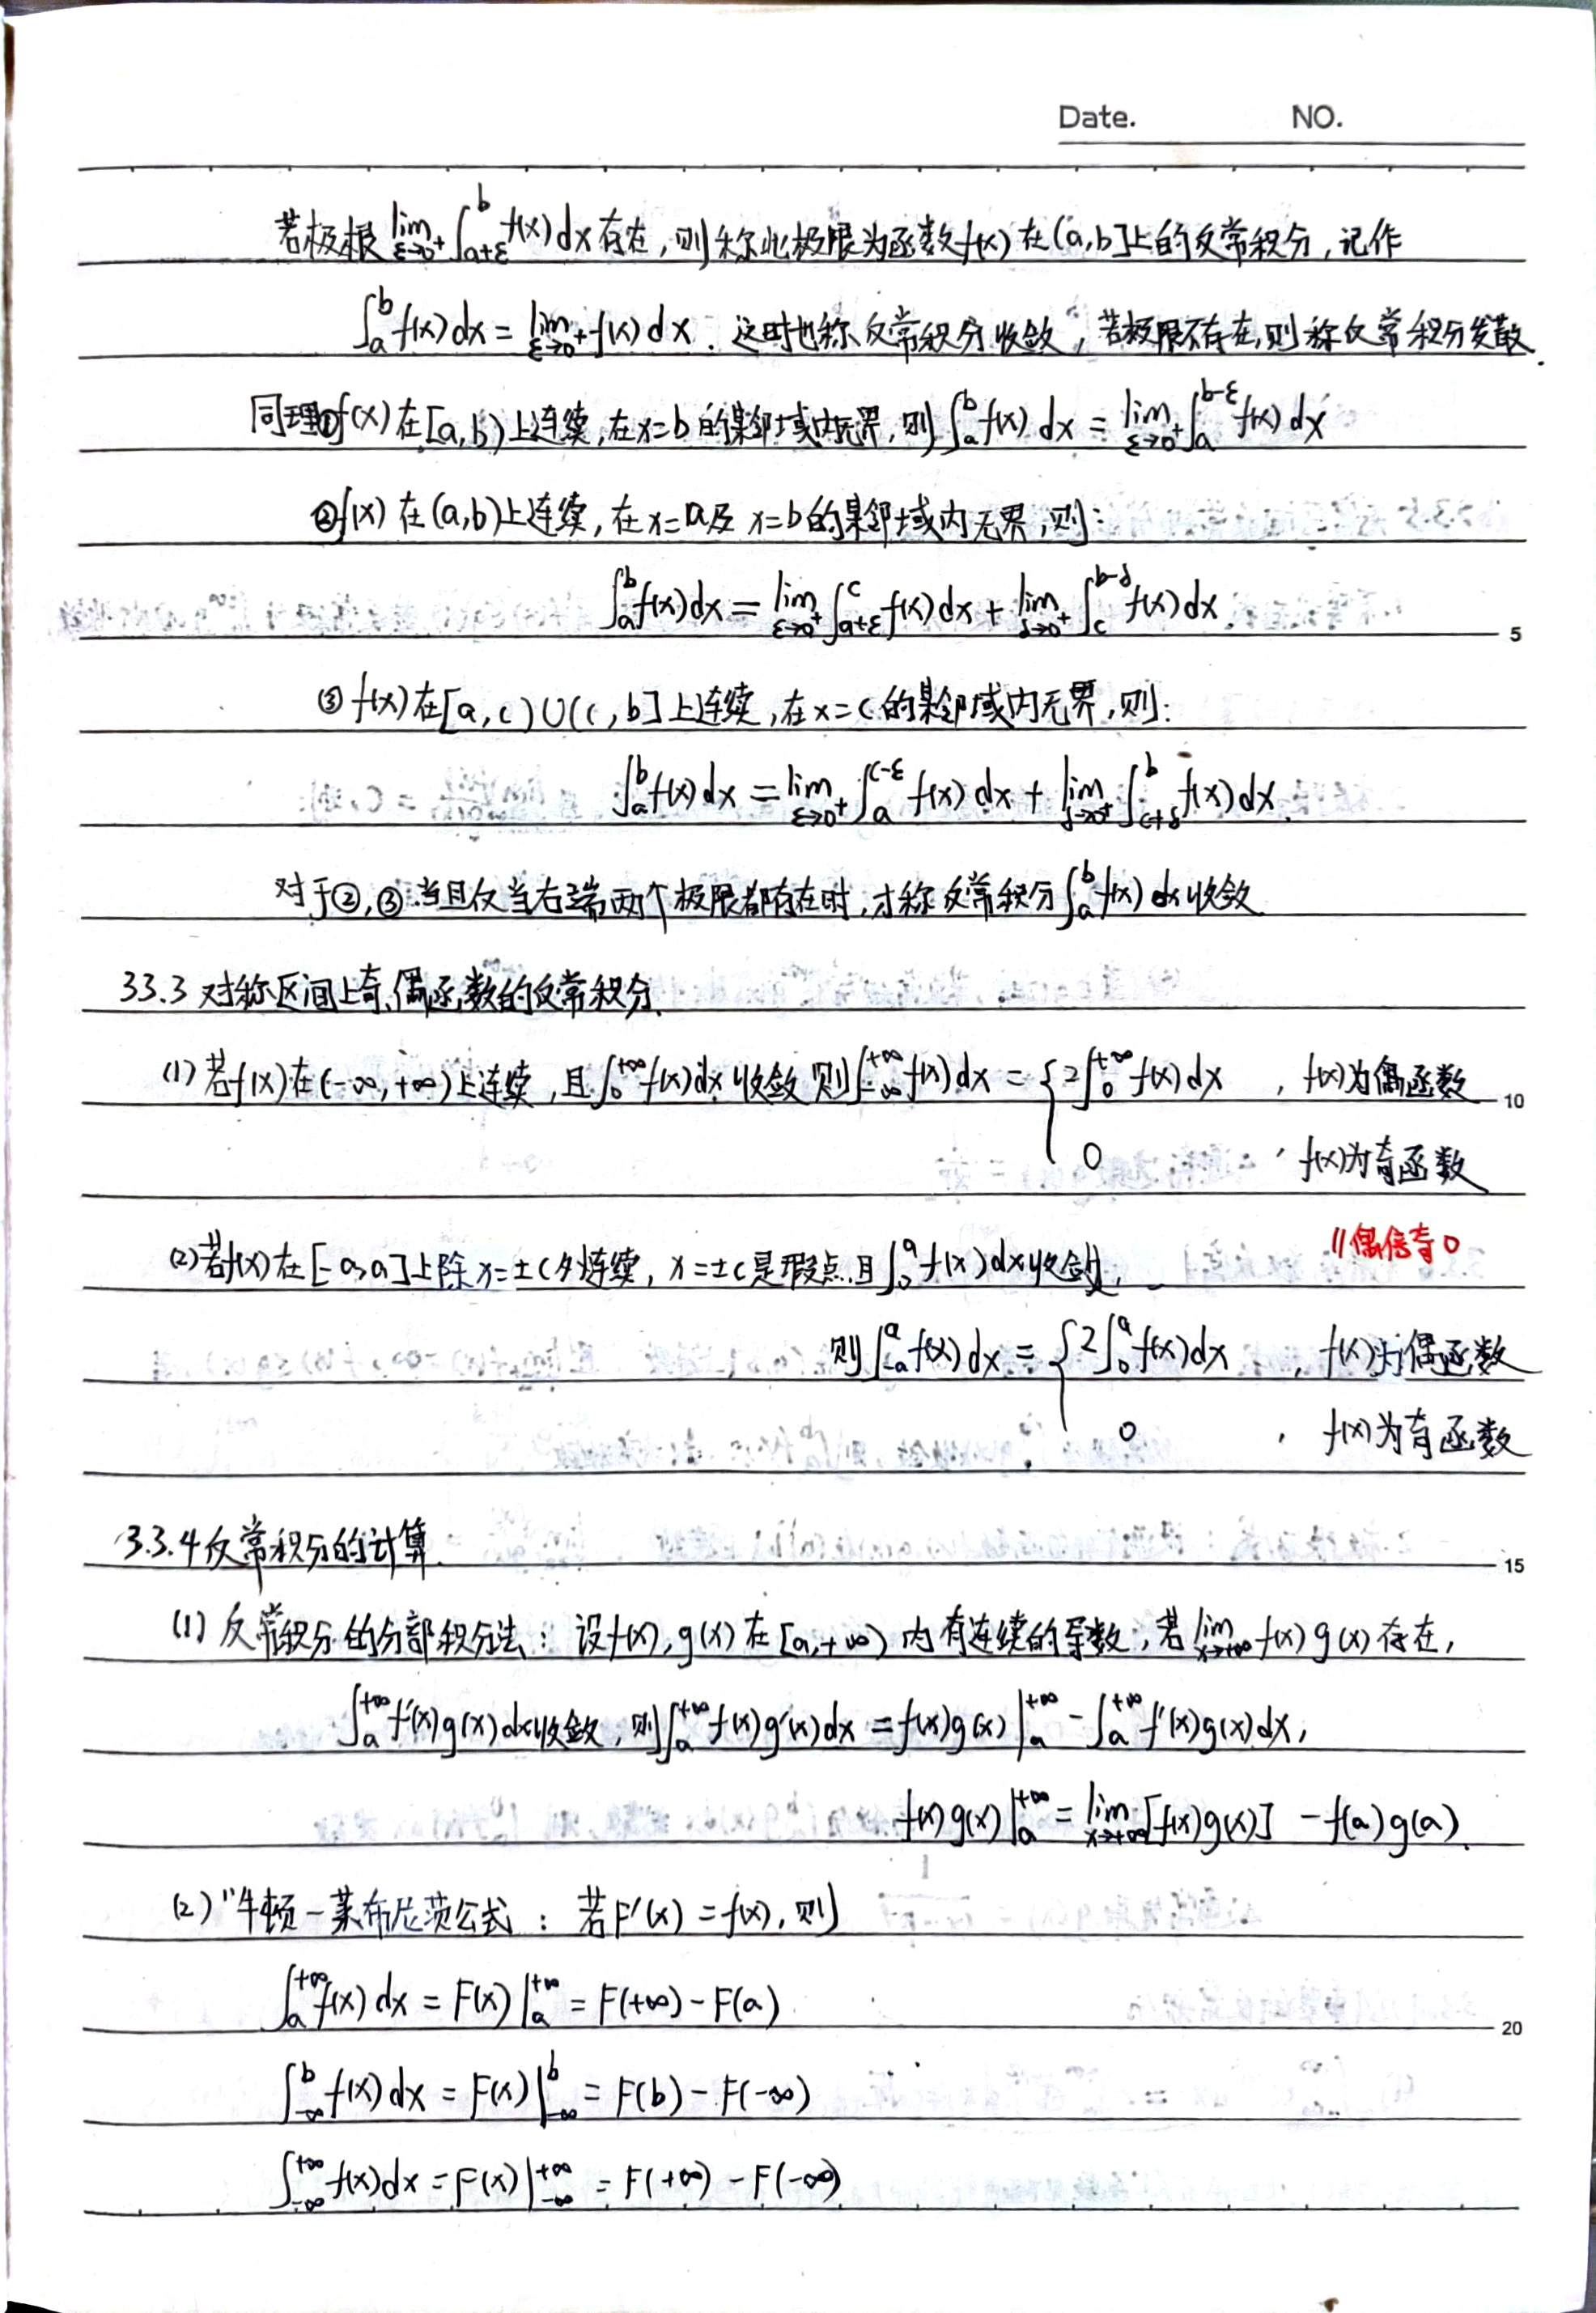 Date. NO.
若极根 lim_{ε→0⁺} ∫_{a+ε}^{b} f(x)dx 存在,则称此极限为函数f(x)在(a,b]上的反常积分,记作
∫_a^b f(x)dx = lim_{ε→0⁺} f(x)dx. 这时也称反常积分收敛,若极限不存在,则称反常积分发散.
同理①f(x)在[a,b)上连续,在x=b的某邻域内无界,则∫_a^b f(x)dx = lim_{ε→0⁺} ∫_a^{b-ε} f(x)dx
②f(x)在(a,b)上连续,在x=a及x=b的某邻域内无界,则:
∫_a^b f(x)dx = lim_{ε→0⁺} ∫_{a+ε}^c f(x)dx + lim_{δ→0⁺} ∫_c^{b-δ} f(x)dx.
5
③f(x)在[a,c)∪(c,b]上连续,在x=c的某邻域内无界,则:
∫_a^b f(x)dx = lim_{ε→0⁺} ∫_a^{c-ε} f(x)dx + lim_{δ→0⁺} ∫_{c+δ}^b f(x)dx.
对于②,③:当且仅当右端两个极限都存在时,才称反常积分∫_a^b f(x)dx收敛.
33.3 对称区间上奇、偶函数的反常积分.
(1)若f(x)在(-∞,+∞)上连续,且∫_0^{+∞} f(x)dx收敛则∫_{-∞}^{+∞} f(x)dx = { 2∫_0^{+∞} f(x)dx , f(x)为偶函数
10
0 , f(x)为奇函数
//偶倍奇0
(2)若f(x)在[-a,a]上除x=±c外连续,x=±c是瑕点,且∫_0^a f(x)dx收敛,
则∫_{-a}^a f(x)dx = { 2∫_0^a f(x)dx , f(x)为偶函数
0 , f(x)为奇函数
3.3.4反常积分的计算.
15
(1) 反常积分的分部积分法: 设f(x),g(x)在[a,+∞)内有连续的导数,若lim_{x→+∞} f(x)g(x)存在,
∫_a^{+∞} f'(x)g(x)dx收敛,则∫_a^{+∞} f(x)g'(x)dx = f(x)g(x)|_a^{+∞} - ∫_a^{+∞} f'(x)g(x)dx,
f(x)g(x)|_a^{+∞} = lim_{x→+∞}[f(x)g(x)] - f(a)g(a).
(2)"牛顿-莱布尼茨公式: 若F'(x)=f(x),则
∫_a^{+∞} f(x)dx = F(x)|_a^{+∞} = F(+∞)-F(a)
20
∫_{-∞}^b f(x)dx = F(x)|_{-∞}^b = F(b)-F(-∞)
∫_{-∞}^{+∞} f(x)dx = F(x)|_{-∞}^{+∞} = F(+∞)-F(-∞)